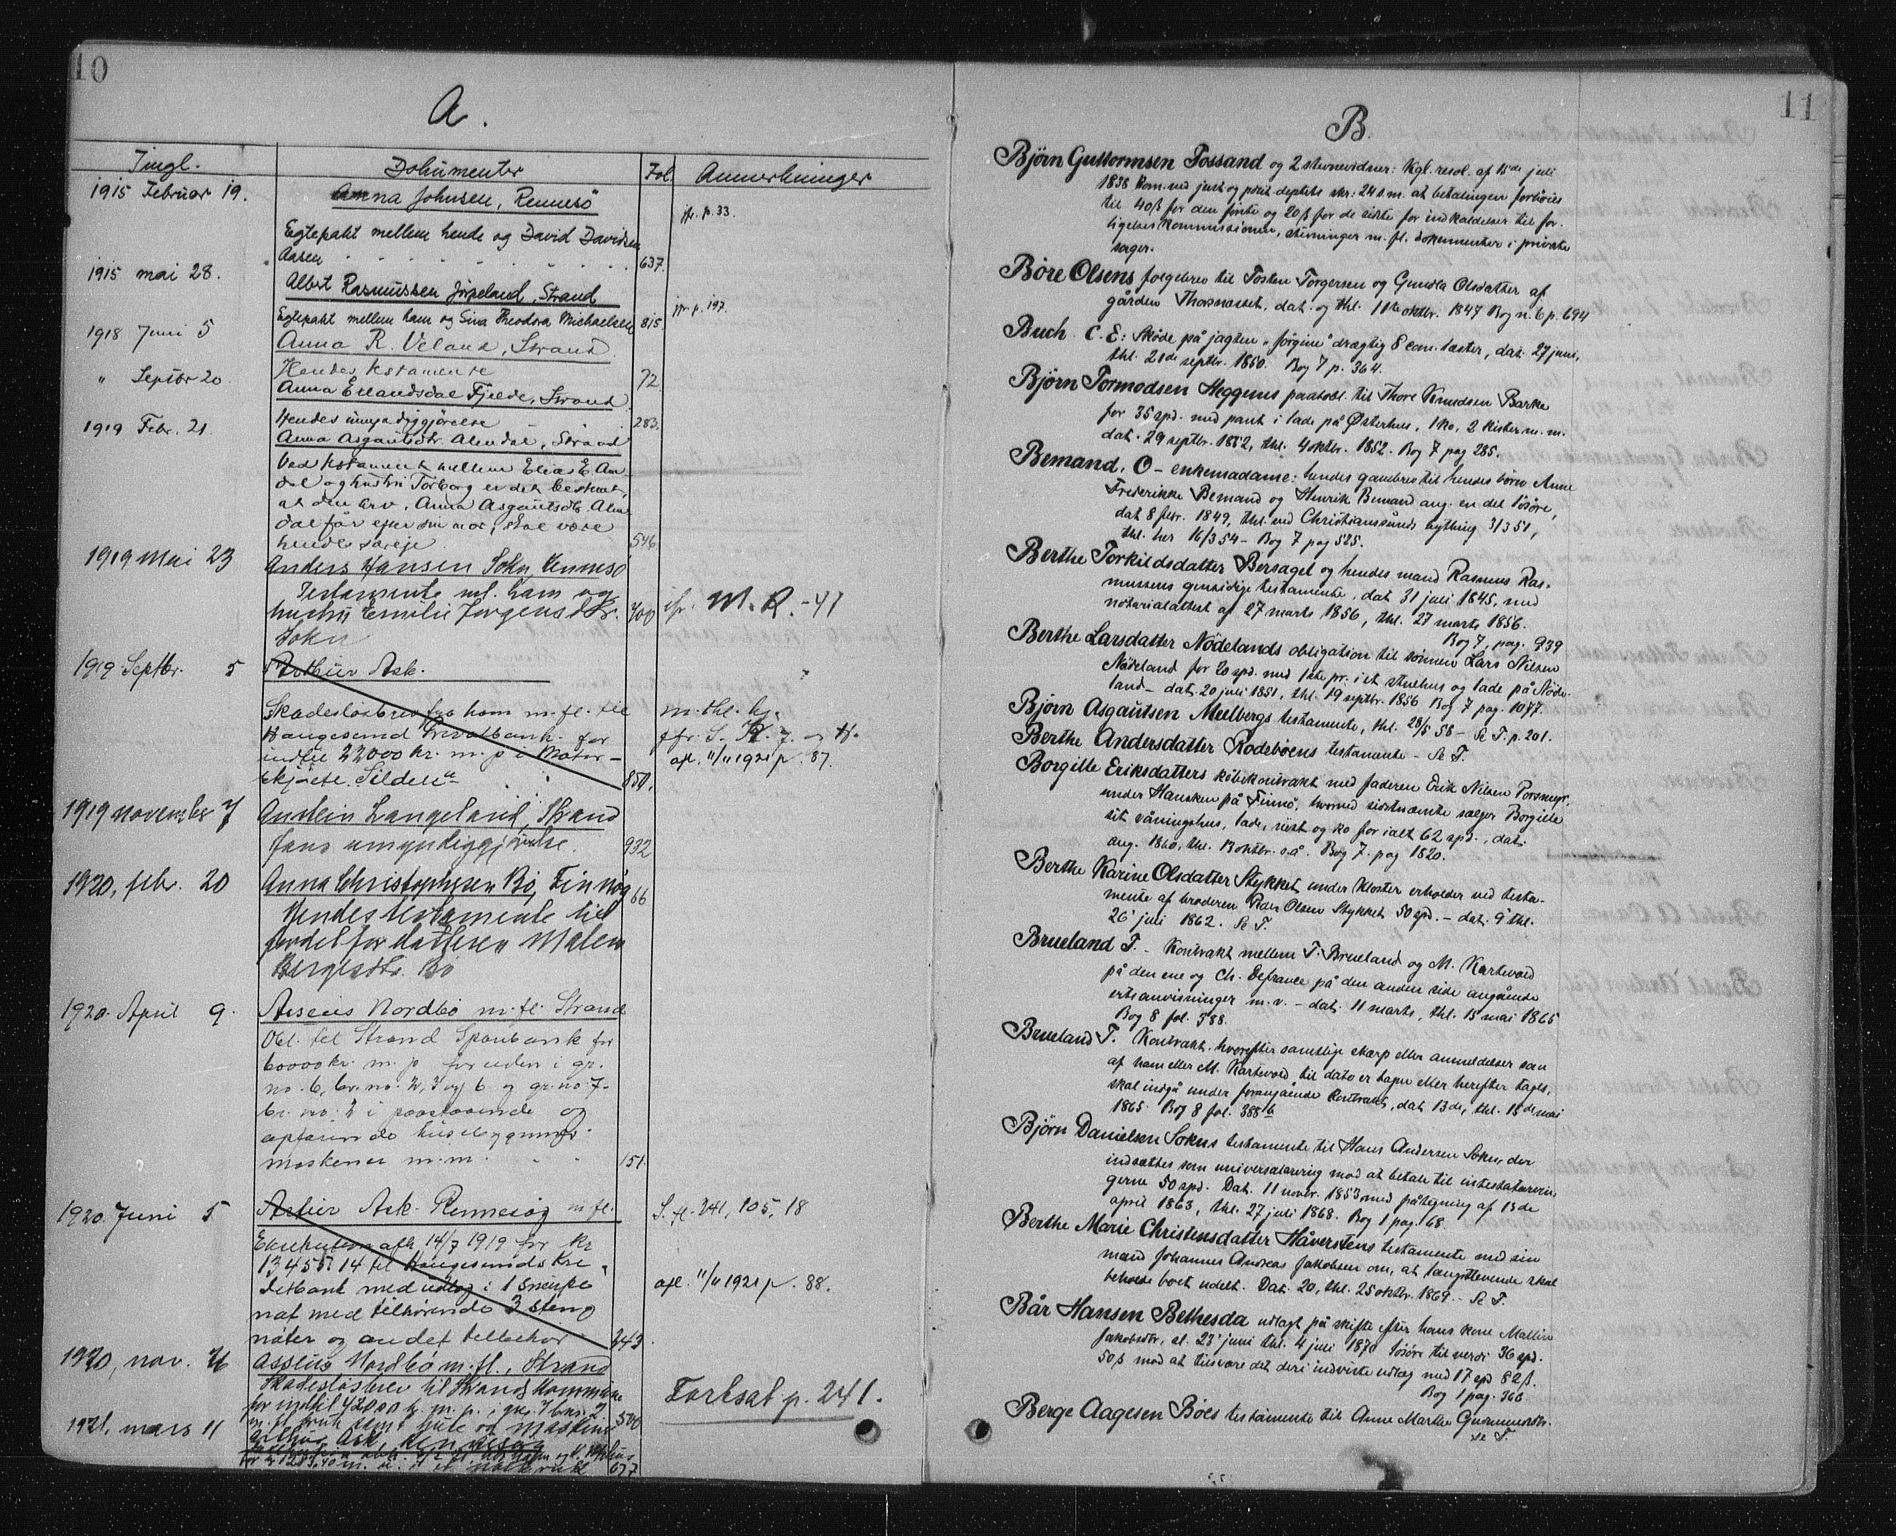 10
A.
Tingl. Dokumenter Fol. Anmerkninger
1915 Februar 19. Anna Johnsen, Rennesö
jfr. p. 33.
Egtepakt mellem hende og David Davidsen
Aasen 637.
1915 mai 28. Albert Rasmussen Jörpeland, Strand
jfr. p. 197.
Egtepakt mellem ham og Sina Theodora Michaelsen 815.
1918 Juni 5 Anna R. Veland, Strand
Hendes testamente 72
" Septbr 20. Anna Erlandsdal Fjelde, Strand
Hendes umyndiggjørelse 283.
1919 Febr. 21. Anna Asgautsdtr. Alendal, Strand
Ved testament mellem Elias E.
dal og hustru Torborg er det bestemt,
at den arv, Anna Asgautsdtr.
dal får efter sin mor, skal være
hendes særeje. 546.
1919 Mai 23 Anders Hansen Sokn Rennesø
Testamente ml. ham og
hustru Emilie Jørgensdtr. 700 jfr. M. R. - 41
Sokn
1919 Septbr. 5 Arthur Ask.
Skadesløsbrev fra ham m. fl. til m. thl. hj.
Haugesund Privatbank for
indtil 22000 kr. m. p. i Motor- afl. 11/11 1921 p. 87.
skjöite Silden" 850.
1919 november 7 Andein Langeland, Strand
hans umyndiggjørelse. 932
1920, febr. 20 Anna Christophersen Bø, Finnøy 66
Hendes testamente til
fordel for datteren Malene
Bergesdtr. Bø
1920. April 9. Asseus Nordbö m. fl. Strand
Obl. til Strand Sparebank for
60000 kr. m. p. foruden i gr.
no. 6, br. no. 2, 3 og 6 og gr. no. 7-
br. no. 2 i paastaaende og
opförende husebygninger
maskener m. m. 151.
1920. Juni 5 Arthur Ask Rennesøy m. fl. S. fl. 241, 105, 18
Eksekution afh. 14/7 1919 for kr
13455,14 til Haugesunds Kre-
ditbank med udlæg i 1 snurpe afl. 11/11 1921 p. 88.
not med tilhørende 3 steng
nöter og andet tilbehør 343.
1920, nov. 26 Asseus Nordbö m. fl., Strand
Skadesløsbrev til Strands Kommune
for indtil 42000 kr. m. p. i gr. 7 br. 2
500
Fortsat p. 241.
1921. mars 11 Arthur Ask, Rennesøy
677
11
B.
Bjørn Guttormsen Fossand og 2 stevnevidner: Kgl. resol. af 15de juli
1838 kom. ved just og polit. deptets skr: 24 s.m. at betalingen forhöies
til 40ß for den första og 20ß for de sidste for indkaldelser til for-
ligelses kommissionen, stevninger m. fl. dokumenter i private
sager.
Böre Olsens følgebrev til Tosten Torgersen og Gunila Olsdatter af
gården Thorsnaset, dat. og thl. 11te oktbr. 1847 Bog n. 6 p. 694
Buch C. E: Skøde på jagten "Jørgine" drægtig 8 com. læster, dat. 27 juni,
thl. 21de septbr. 1850. Bog 7 p. 364.
Bjørn Tormodsen Heggems panteobl. til Thore Knudsen Barke
for 35 spd. med pant i lade på Østerhus, 1 ko, 2 kister m. m.
dat. 29 septbr. 1852, thl. 4 oktbr. 1852. Bog 7 pag 285.
Bemand, O - enkemadame: hendes gavebrev til hendes børn Anne
Frederikke Bemand og Henrik Bemand ang. en del løsøre,
dat 8 febr. 1849, thl. ved Christianssunds bything 31/3 51,
thl. her 16/3 54 - Bog 7 pag 525.
Berthe Torkildsdatter Bersaget og hendes mand Rasmus Ras-
mussens gensidige testamente, dat 31 juli 1845, med
notarialattest af 27 marts 1856, thl. 27 marts 1856.
Bog 7, pag. 939
Berthe Larsdatter Nödelands obligation til sønnen Lars Nilsen
Nödeland for 20 spd. med 1ste pr. i et stuehus og lade på Nöde-
land - dat. 20 juli 1851, thl. 19 septbr. 1856 Bog 7 pag. 1077.
Bjørn Asgautsen Meelbergs testamente, thl. 28/5 58 - Se T. p. 201.
Berthe Andersdatter Rodebøens testamente - Se T.
Borgille Eriksdatters købekontrakt med faderen Erik Nilsen Porsmyr
under Hausken på Finnö, hvorved sidstnævnte sælger Borgille
sit våningshus, lade, nöst og ko for ialt 62 spd., dat.
aug. 1860, thl. 13 oktbr. s.å. Bog 7. pag 1820.
Berthe Karine Olsdatter Stykket under Kloster erholder ved testa-
mente af broderen Peder Olsen Stykket 50 spd. - dat. 9' thl.
26' juli 1862. Se T.
Brueland T. - Kontrakt mellem T. Brueland og M. Kartevold
på den ene og Ch. Defrance på den anden side angående
ertsanvisninger m. v. - dat. 11 marts, thl. 15 mai 1865
Bog 8 fol. 388.
Brueland T. Kontrakt. hvorefter samtlige skærp eller anmeldelser som
af ham eller M. Kartevold til dato er tagne eller herefter tages,
skal indgå under foranjående kontrakt, dat 13de, thl. 15de mai
1865. Bog 8 fol. 388 b
Bjørn Danielsen Sokns testamente til Hans Andersen Sokn, der
indsættes som universalarving mod at betale til intestatarvin-
gerne 50 spd. Dat. 11 novbr. 1853 med påtegning af 13de
april 1863, thl. 27 juli 1868. Bog 1 pag 68.
Berthe Marie Christensdatter Håverstens testamente med sin
mand Johannes Andreas Jakobsen om, at længstlevende skal
beholde boet udelt. Dat. 20, thl. 25 oktbr. 1869. - Se T.
Bår Hansen Bethesda udlagt på skifte efter hans kone Malline
Jakobsdtr, sl. 23' juni thl. 4 juli 1870 løsøre til verdi 36 spd.
50ß mod at tilsvare det deri indviste udlæg med 17 spd 82ß.
Bog 1 pag. 366.
Berge Aagesen Böes testamente til Anne Marthe Gudmundsdtr.
se T.